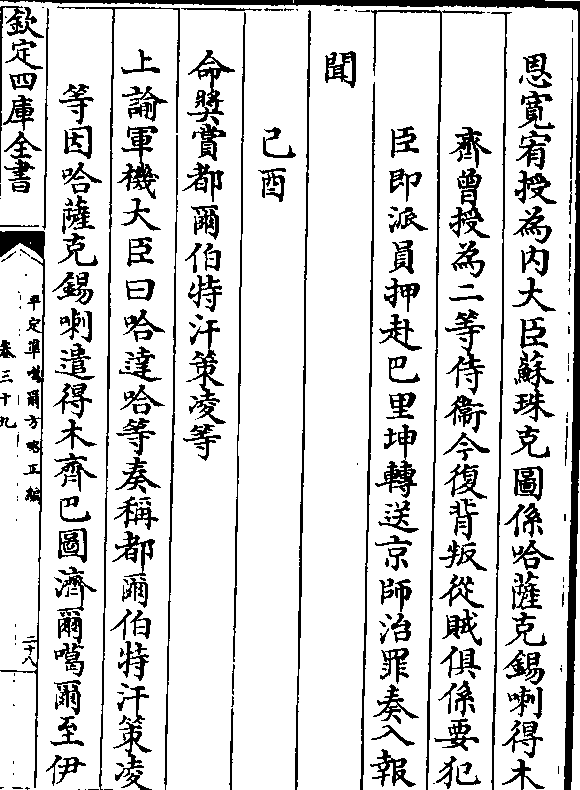 恩寛宥授為内大臣蘇珠克圖係哈薩克錫喇得木
齊曾授為二等侍衞今復背叛從賊俱係要犯
臣即派員押赴巴里坤轉送京師治罪奏入報
聞
己酉
命奬賞都爾伯特汗策凌等
上諭軍機大臣曰哈達哈等奏稱都爾伯特汗策凌
等因哈薩克錫喇遣得木齊巴圖濟爾噶爾至伊
欽定四庫全書
平定準噶爾方略正編
卷三十九
二十八